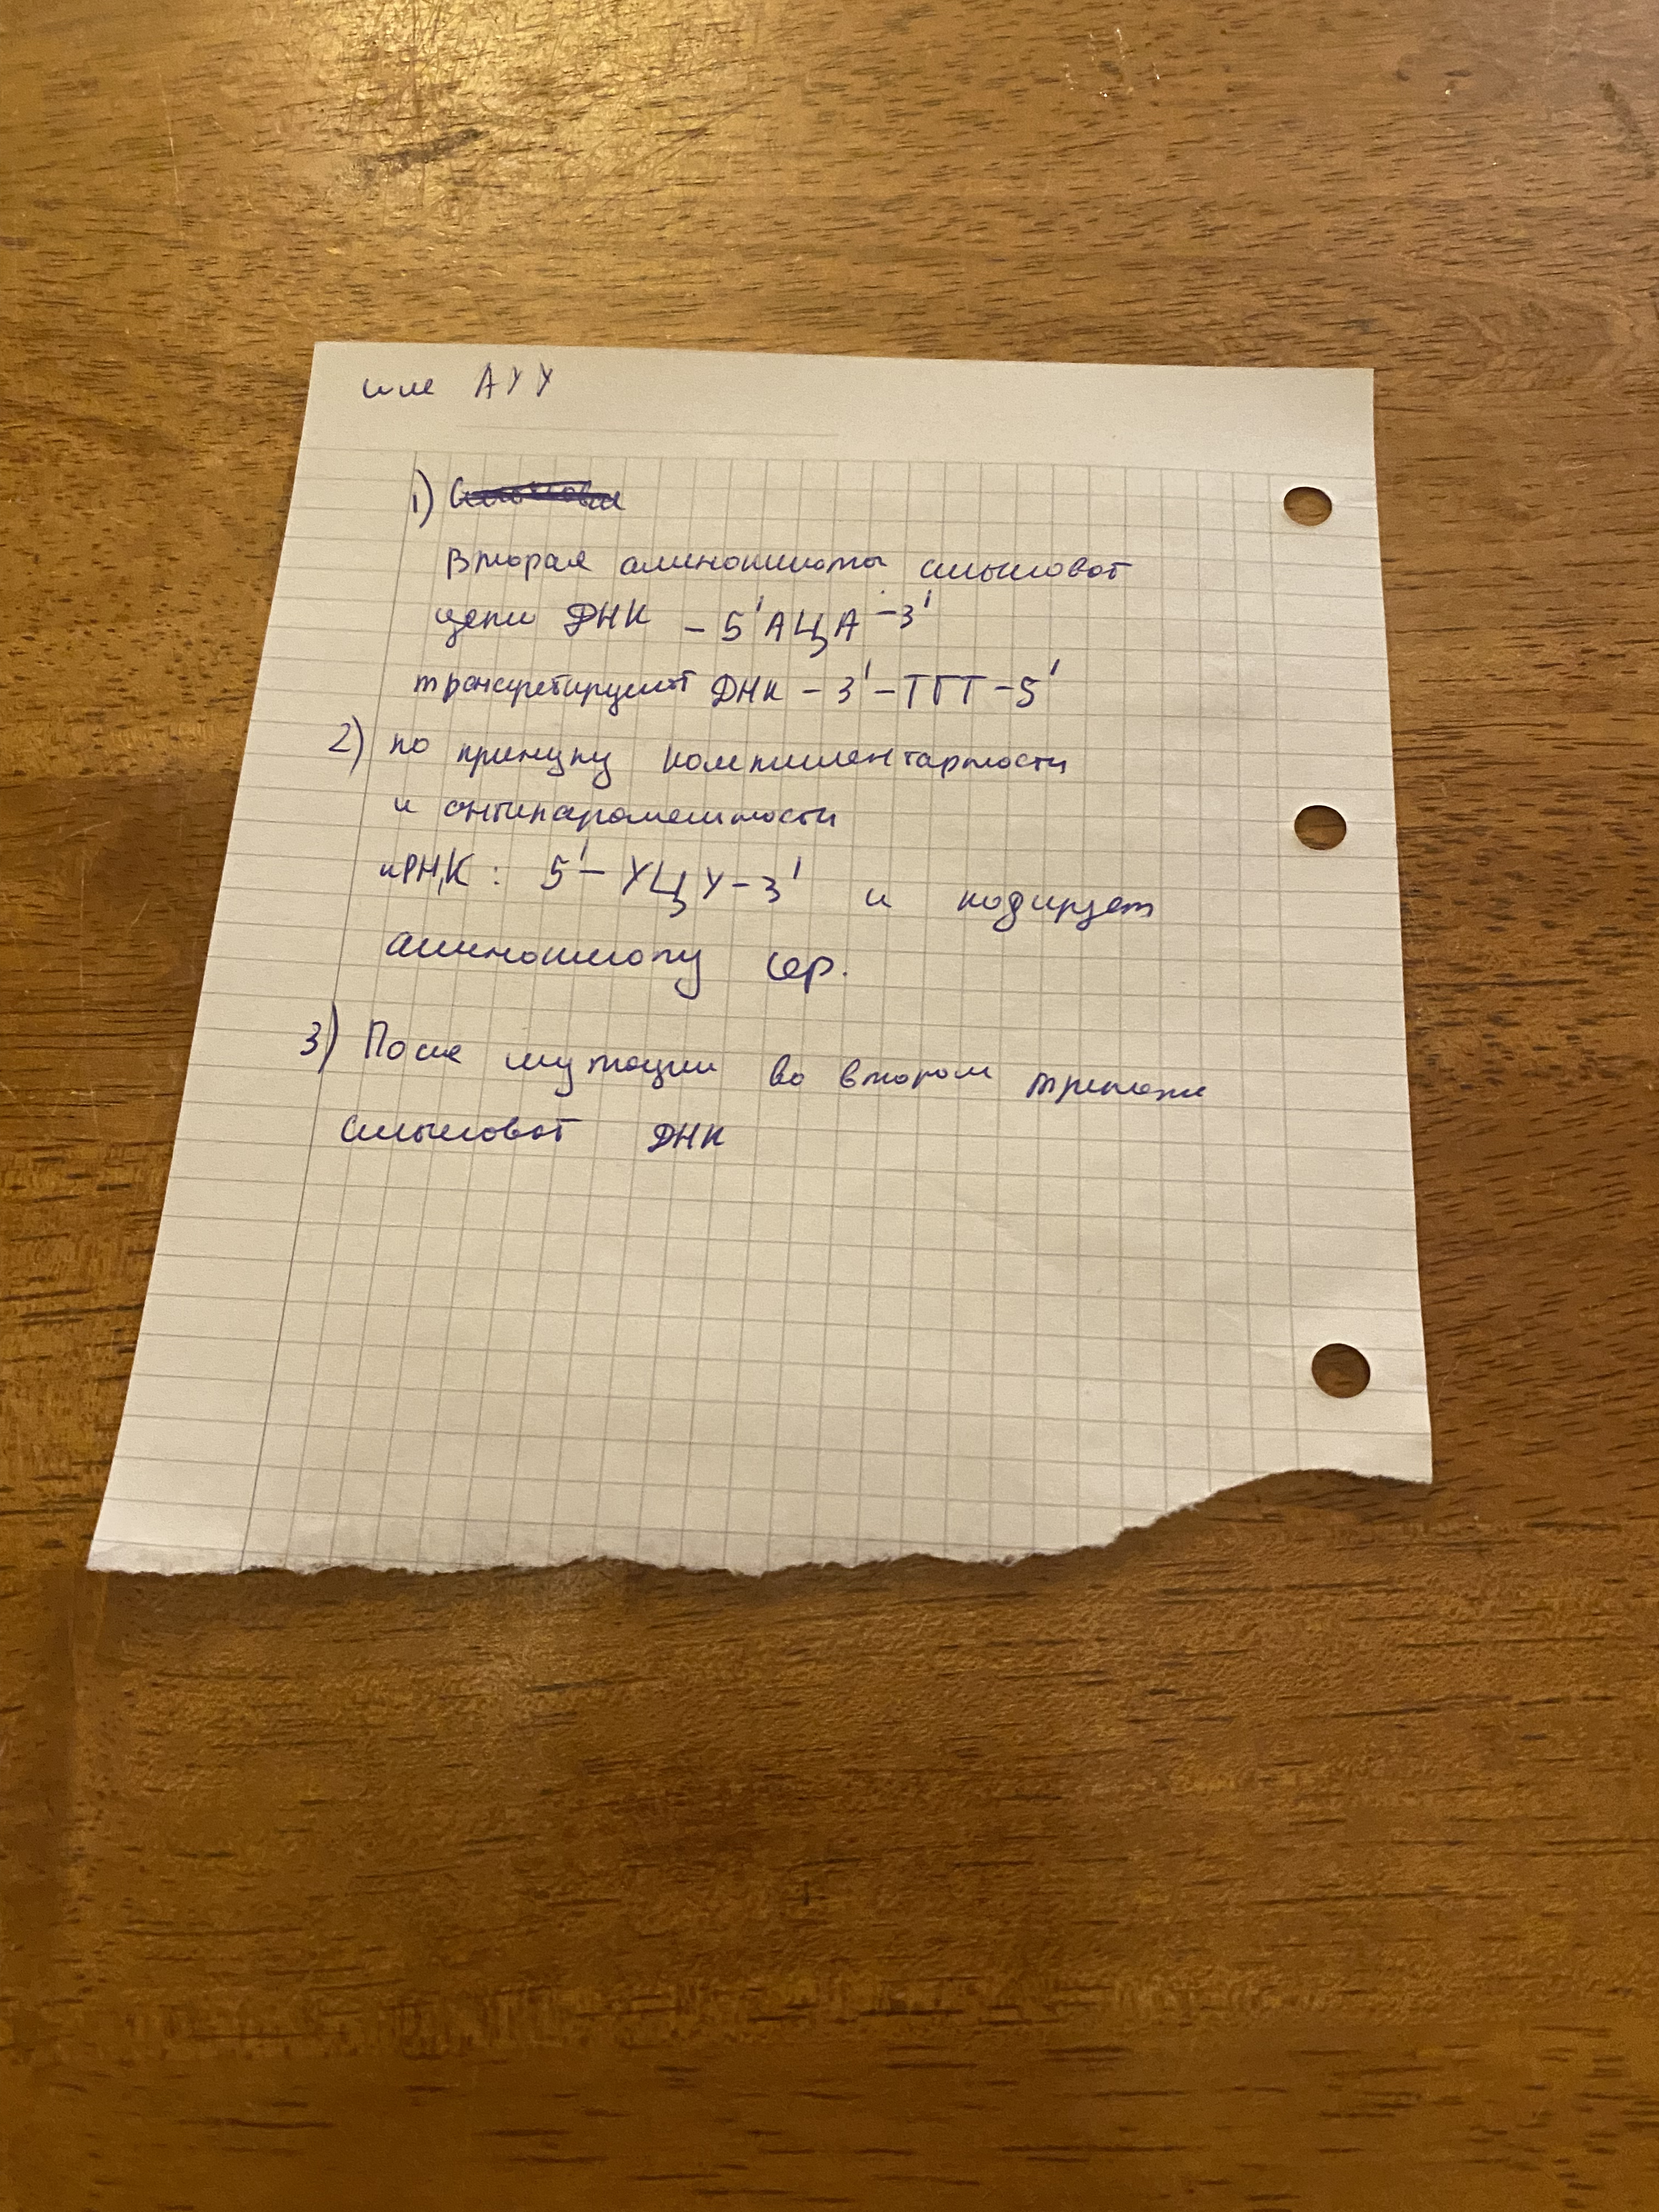 или АУУ
1)
Вторая аминокислота смысловой
цепи ДНК - 5'АЦА-3'
транскрибируемой ДНК - 3'-ТГТ-5'
2) по принципу комплиментарности
и антипараллельности
иРНК: 5'- УЦУ-3' и кодирует
аминокислоту сер.
3) После мутации во втором триплете
смысловой ДНК